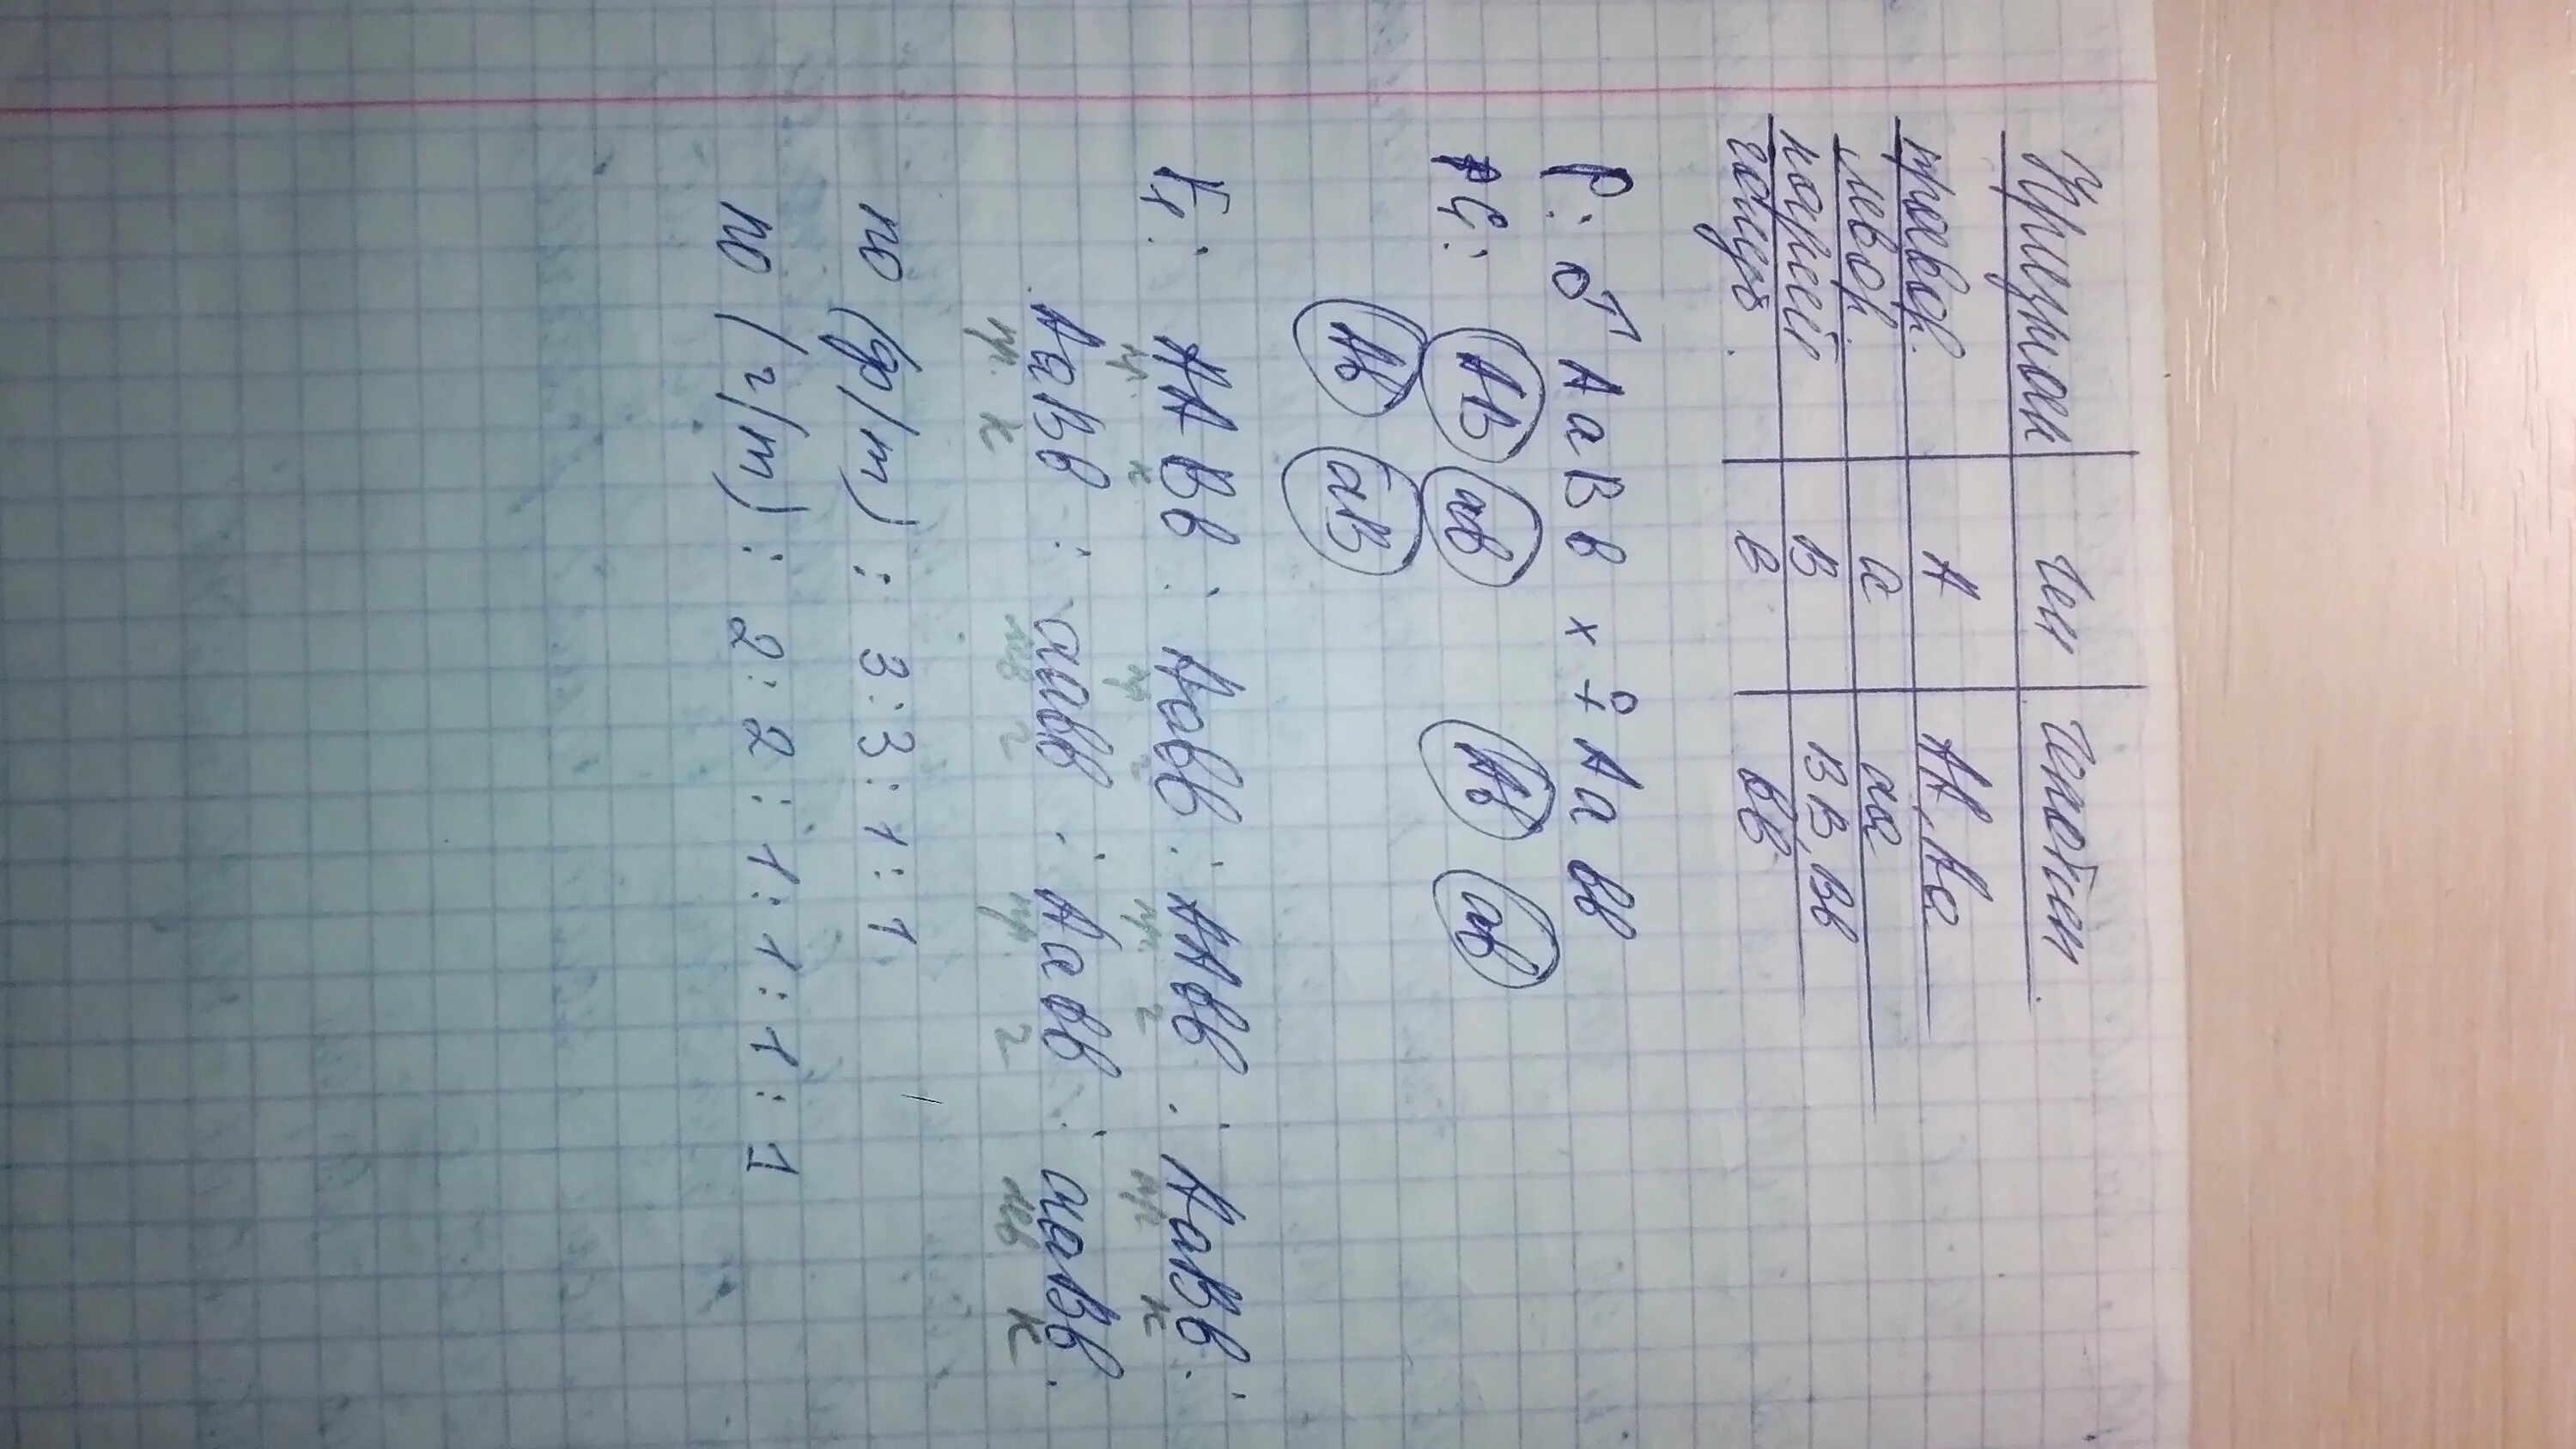 Признак Ген Генотип
правор. А АА, Аа
левор. а аа
карей В ВВ, Вв
голуб. в вв
Р: ♂ АаВв х ♀ Аавв
G: АВ ав Ав ав
Ав аВ
F₁: ААВв : Аавв : ААвв : АаВв :
пр. к пр. г пр. г пр к
АаВв : аавв : Аавв : ааВв.
пр. к лев г пр. г лев к
по (ф/т) : 3:3:1:1
по (г/т) : 2:2:1:1:1:1